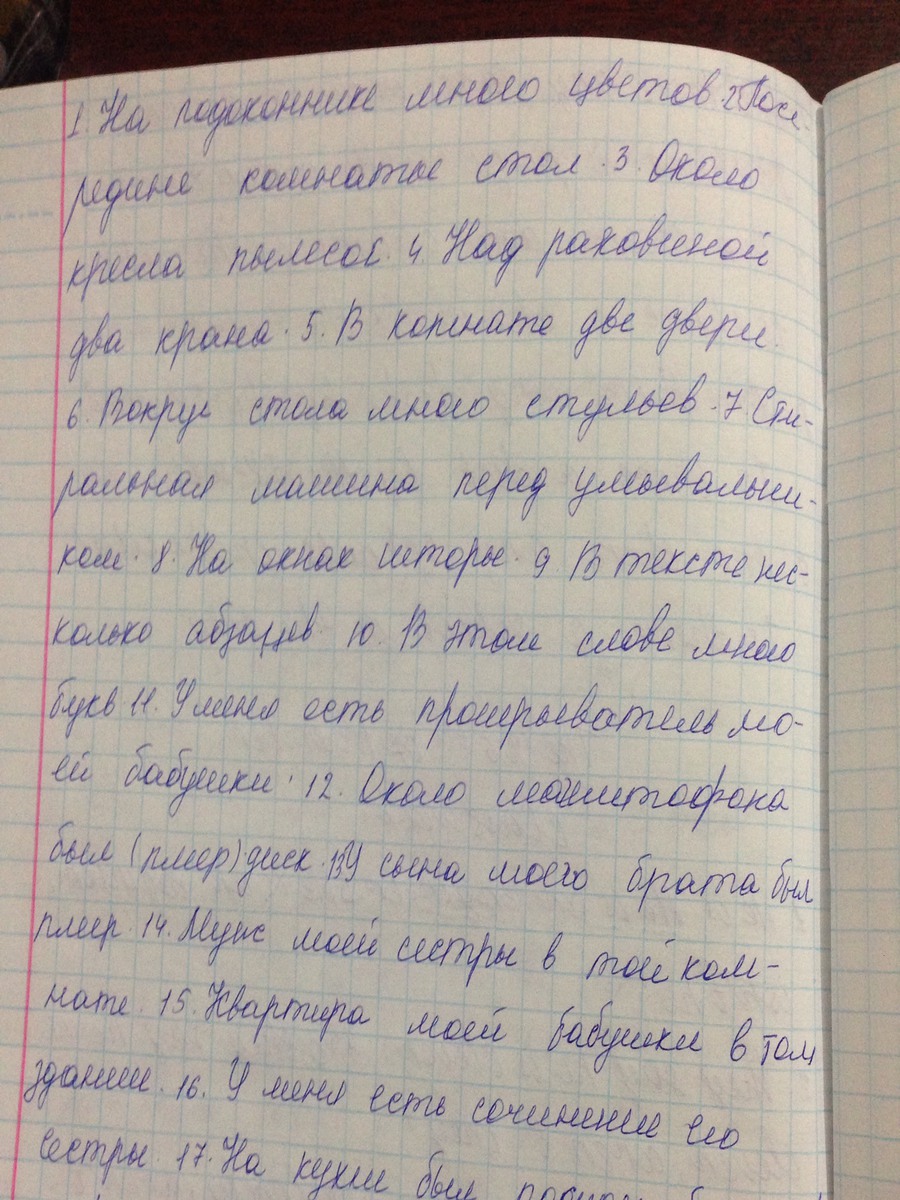 1. На подоконнике много цветов. 2 Посе-
редине комнаты стол. 3. Около
кресла пылесос. 4 Над раковиной
два крана. 5. В комнате две двери.
6. Вокруг стола много стульев. 7 Сти-
ральная машина перед умывальни-
ком. 8. На окнах шторы. 9 В тексте нес-
колько абзацев. 10. В этом слове много
букв 11. У меня есть проигрыватель мо-
ей бабушки. 12. Около магнитофона
был (плеер) диск. 13 У сына моего брата был
плеер. 14. Муж моей сестры в той ком-
нате. 15. Квартира моей бабушки в том
здании. 16. У меня есть сочинение его
сестры. 17. На кухне был